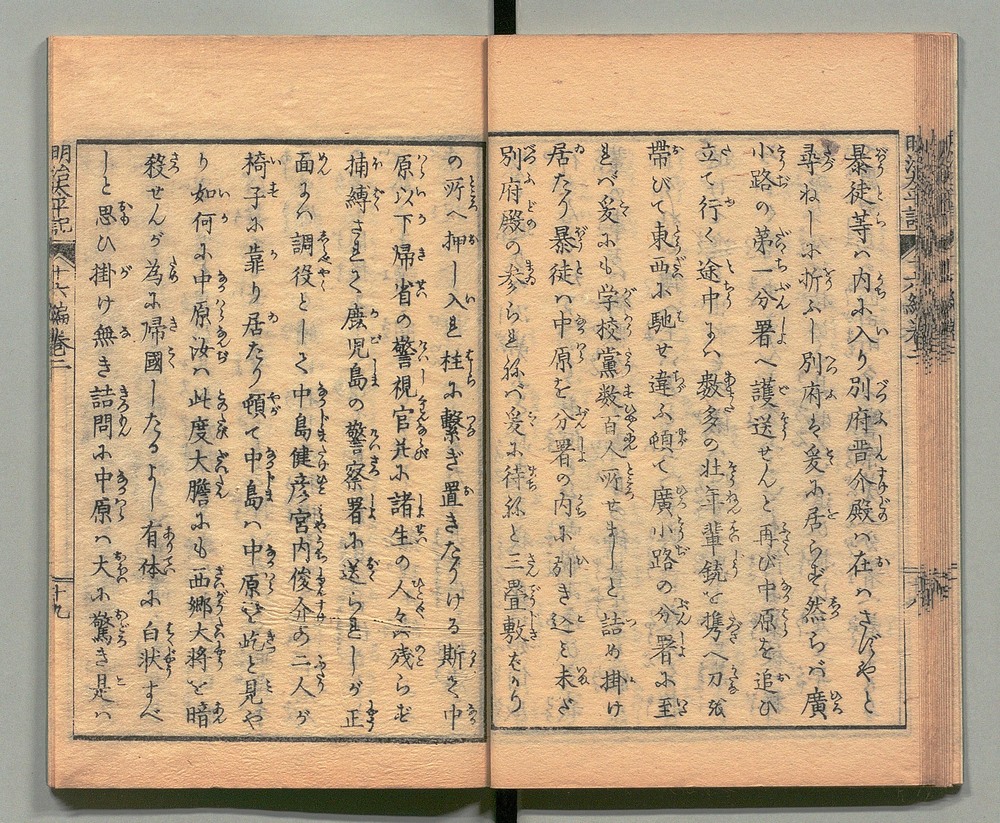 暴徒等ハ内に入り別府晋介殿ハ在ハさぬやと
尋ねしに折ふし別府も爰に居らず然らバ廣
小路の第一分署へ護送せんと再び中原を追ひ
立て行く途中にハ数多の壮年輩銃を携へ刀を
帯びて東西に馳せ違ふ頓て廣小路の分署に至
れバ爰にも学校黨数百人所せましと詰め掛け
居たり暴徒ハ中原を分署の内に引き込ミ未だ
別府殿の参られねバ爰に待ねと三疊敷むかり
の所へ押し入れ柱に繋ぎ置きたりける斯て中
原以下帰省の警視官并に諸生の人々ハ残らず
捕縛されて鹿児島の警察署に送られしが正
面にハ調役として中島健彦宮内俊介の二人が
椅子に靠り居たり頓て中島ハ中原を屹と見や
り如何に中原汝ハ此度大膽にも西郷大将を暗
殺せんが為に帰國したるよし有体に白状すべ
しと思ひ掛け無き詰問に中原ハ大に驚き是ハ
明治太平記
十六編巻二
十九